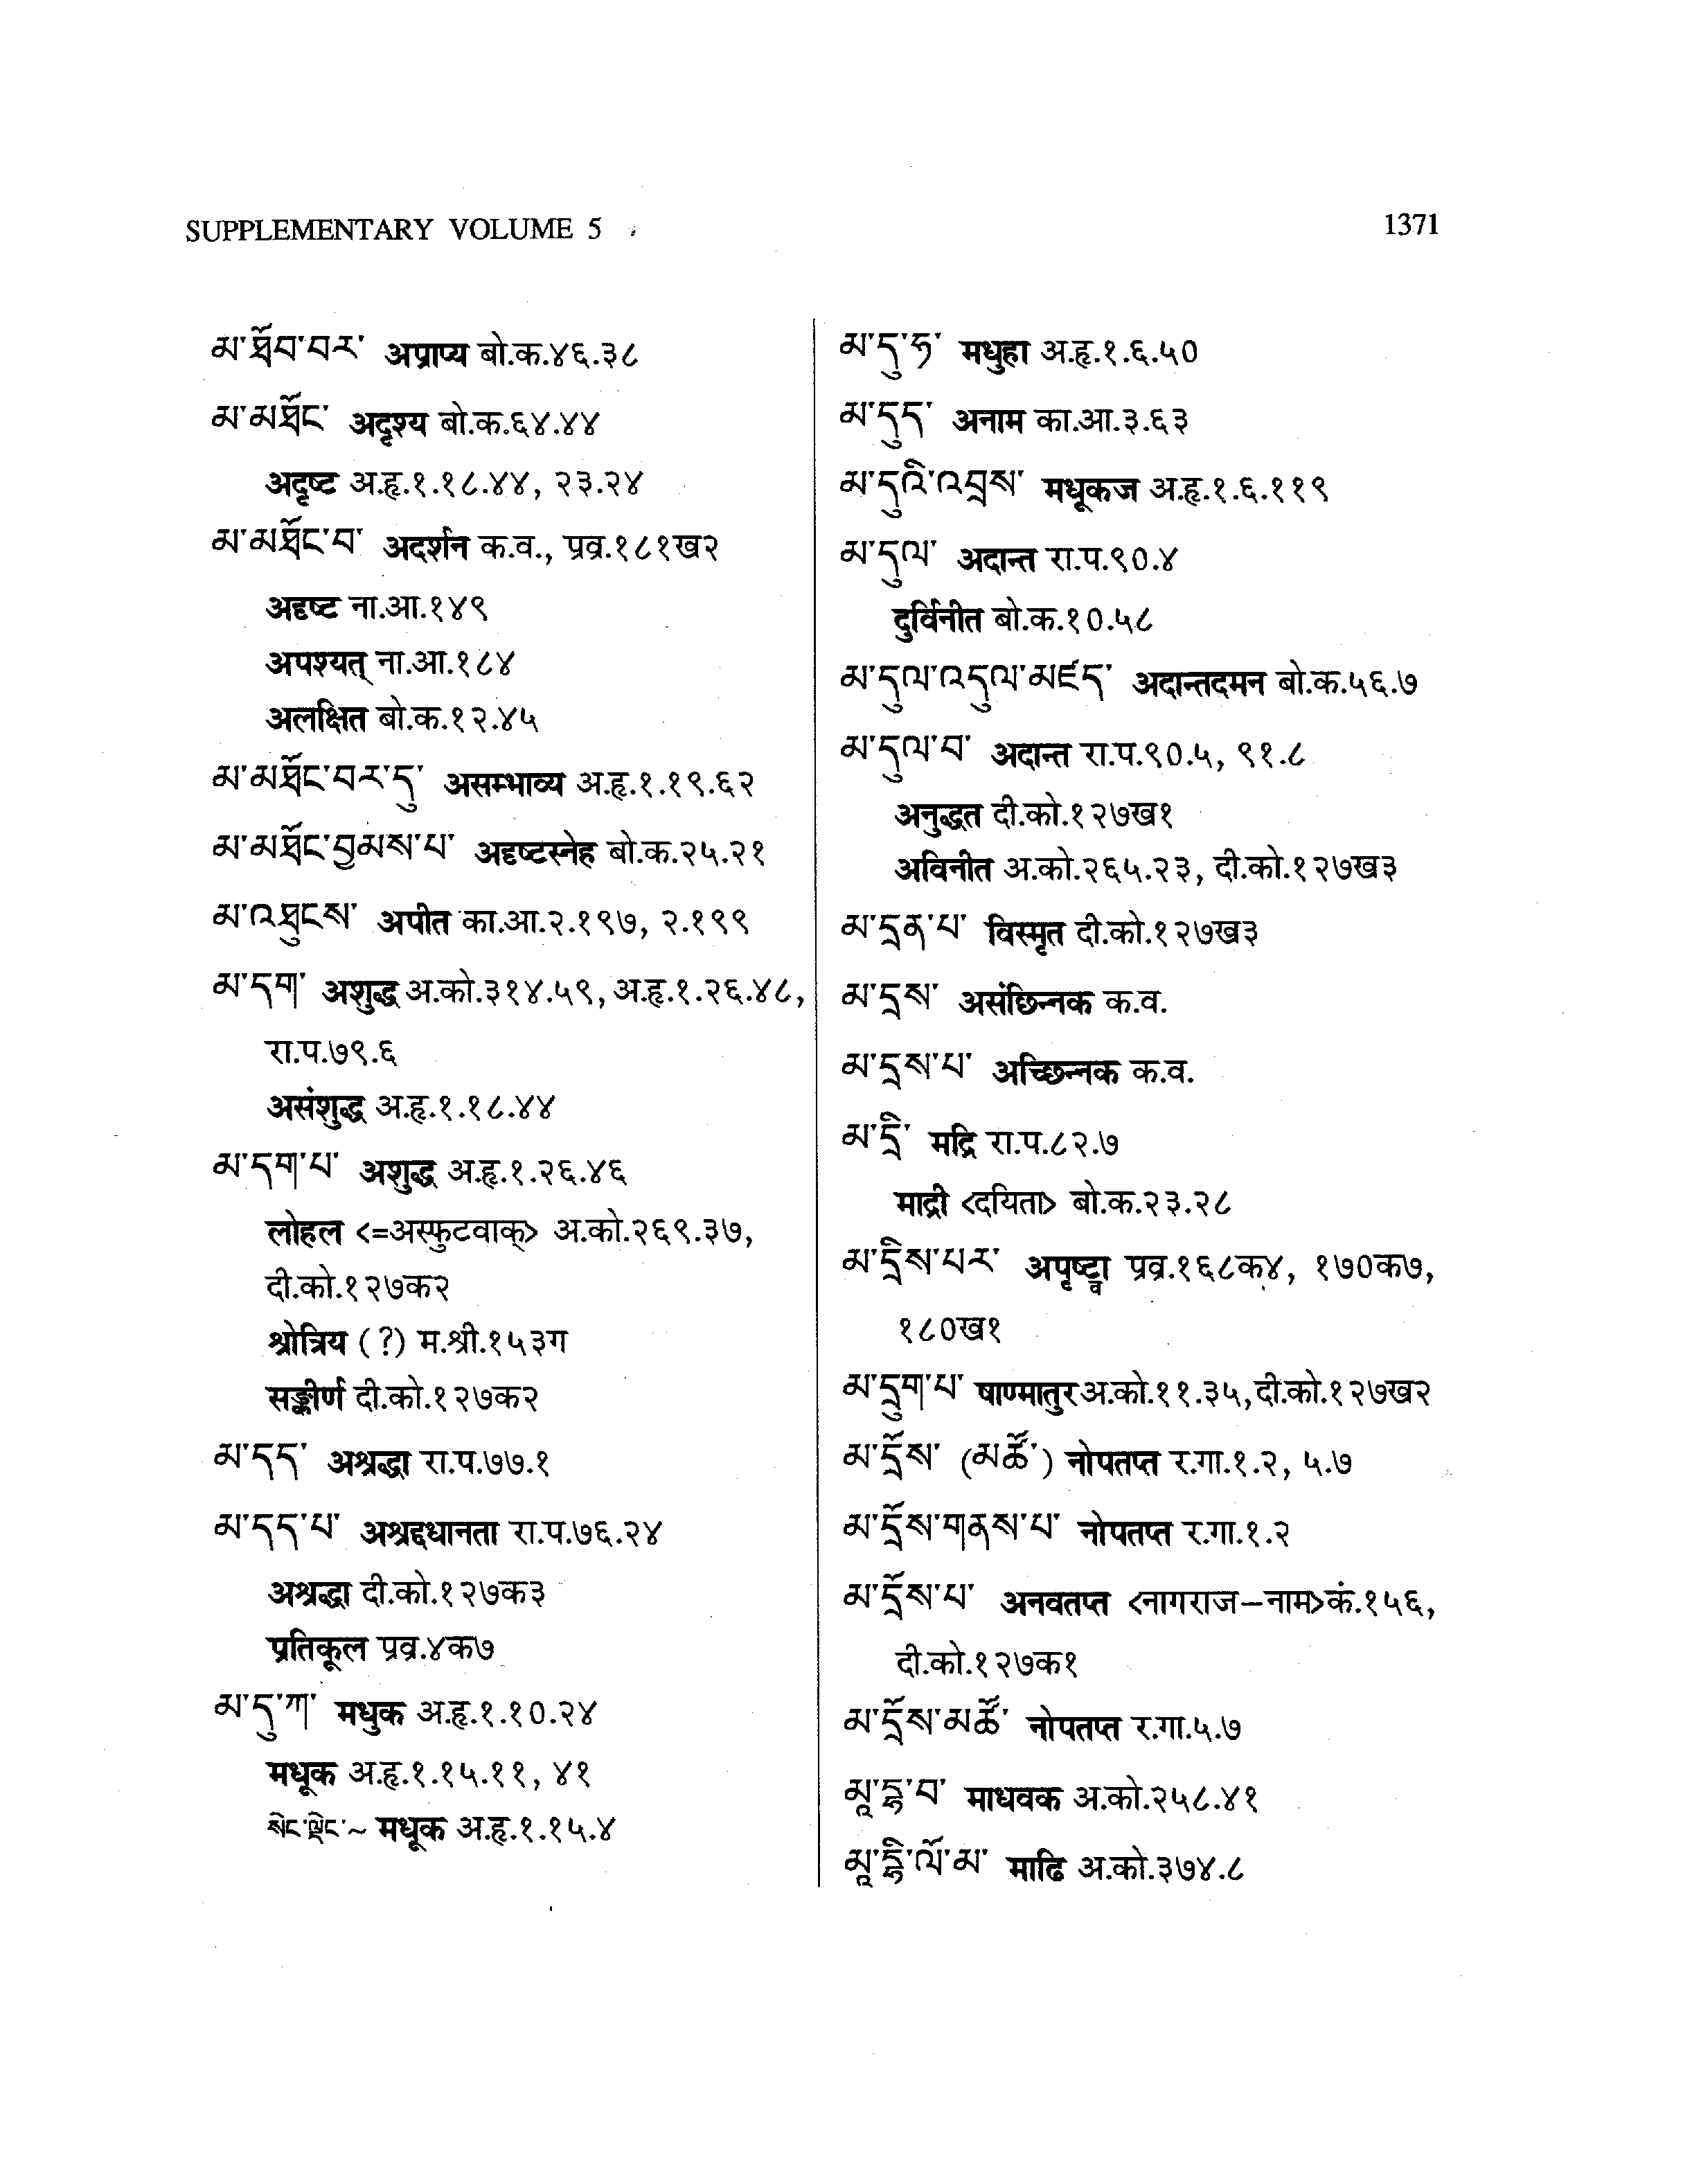 SUPPLEMENTARY VOLUME 5
1371
མ་ཐོབ་བར་ अप्राप्य बो.क.४६.३८
མ་མཐོང་ अदृश्य बो.क.६४.४४
अदृष्ट अ.हृ.१.१८.४४, २३.२४
མ་མཐོང་བ་ अदर्शन क.व., प्रव्र.१८१ख२
अदृष्ट ना.आ.१४९
अपश्यत् ना.आ.१८४
अलक्षित बो.क.१२.४५
མ་མཐོང་བར་དུ་ असम्भाव्य अ.हृ.१.१९.६२
མ་མཐོང་བྱམས་པ་ अदृष्टस्नेह बो.क.२५.२१
མ་འཐུངས་ अपीत का.आ.२.१९७, २.१९९
མ་དག་ अशुद्ध अ.को.३१४.५९, अ.हृ.१.२६.४८,
रा.प.७९.६
असंशुद्ध अ.हृ.१.१८.४४
མ་དག་པ་ अशुद्ध अ.हृ.१.२६.४६
लोहल <=अस्फुटवाक्> अ.को.२६९.३७,
दी.को.१२७क२
श्रोत्रिय (?) म.श्री.१५३ग
सङ्कीर्ण दी.को.१२७क२
མ་དད་ अश्रद्धा रा.प.७७.१
མ་དད་པ་ अश्रद्दधानता रा.प.७६.२४
अश्रद्धा दी.को.१२७क३
प्रतिकूल प्रव्र.४क७
མ་དུ་ཀ་ मधुक अ.हृ.१.१०.२४
मधूक अ.हृ.१.१५.११, ४१
སེང་ལྡེང་~ मधूक अ.हृ.१.१५.४
མ་དུ་ཧ་ मधुहा अ.हृ.१.६.५०
མ་དུད་ अनाम का.आ.३.६३
མ་དུའི་འབྲས་ मधूकज अ.हृ.१.६.११९
མ་དུལ་ अदान्त रा.प.९०.४
दुर्विनीत बो.क.१०.५८
མ་དུལ་འདུལ་མཛད་ अदान्तदमन बो.क.५६.७
མ་དུལ་བ་ अदान्त रा.प.९०.५, ९१.८
अनुद्धत दी.को.१२७ख१
अविनीत अ.को.२६५.२३, दी.को.१२७ख३
མ་དྲན་པ་ विस्मृत दी.को.१२७ख३
མ་དྲས་ असंछिन्नक क.व.
མ་དྲས་པ་ अच्छिन्नक क.व.
མ་དྲི་ मद्रि रा.प.८२.७
माद्री <दयिता> बो.क.२३.२८
མ་དྲིས་པར་ अपृष्ट्वा प्रव्र.१६८क४, १७०क७,
१८०ख१
མ་དྲུག་པ་ षाण्मातुर अ.को.११.३५, दी.को.१२७ख२
མ་དྲོས་ (མཚོ་) नोपतप्त र.गा.१.२, ५.७
མ་དྲོས་གནས་པ་ नोपतप्त र.गा.१.२
མ་དྲོས་པ་ अनवतप्त <नागराज-नाम>कं.१५६,
दी.को.१२७क१
མ་དྲོས་མཚོ་ नोपतप्त र.गा.५.७
མཱ་དྷ་བ་ माधवक अ.को.२५८.४१
མཱ་དྷི་ལོ་མ་ माढि अ.को.३७४.८